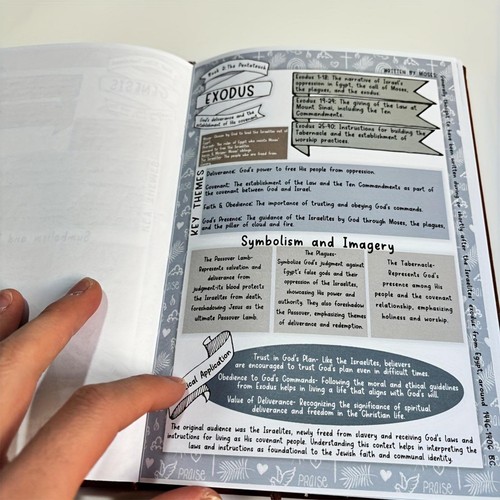 Book 2: The Pentateuch
EXODUS
God's deliverance and the
establishment of His covenant.
WRITTEN BY MOSES
Exodus 1-18: The narrative of Israel's
oppression in Egypt, the call of Moses,
the plagues, and the exodus.
Exodus 19-24: The giving of the Law at
Mount Sinai, including the Ten
Commandments.
Exodus 25-40: Instructions for building the
Tabernacle and the establishment of
worship practices.
KEY THEMES
Deliverance: God's power to free His people from oppression.
Covenant: The establishment of the Law and the Ten Commandments as part of
the covenant between God and Israel.
Faith & Obedience: The importance of trusting and obeying God's commands.
God's Presence: The guidance of the Israelites by God through Moses, the plagues,
and the pillar of cloud and fire.
Symbolism and Imagery
The Passover Lamb-
Represents salvation and
deliverance from
judgment-its blood protects
the Israelites from death,
foreshadowing Jesus as the
ultimate Passover Lamb.
The Plagues-
Symbolize God's judgment against
Egypt's false gods and their
oppression of the Israelites,
showcasing His power and
authority. They also foreshadow
the Passover, emphasizing themes
of deliverance and redemption.
The Tabernacle-
Represents God's
presence among His
people and the covenant
relationship, emphasizing
holiness and worship.
ical Application
Trust in God's Plan- Like the Israelites, believers
are encouraged to trust God's plan even in difficult times.
Obedience to God's Commands- Following the moral and ethical guidelines
from Exodus helps in living a life that aligns with God's will.
Value of Deliverance- Recognizing the significance of spiritual
deliverance and freedom in the Christian life.
The original audience was the Israelites, newly freed from slavery and receiving God's laws and
instructions for living as His covenant people. Understanding this context helps in interpreting the
laws and instructions as foundational to the Jewish faith and communal identity.
PRAISE
PRAISE
PRAISE